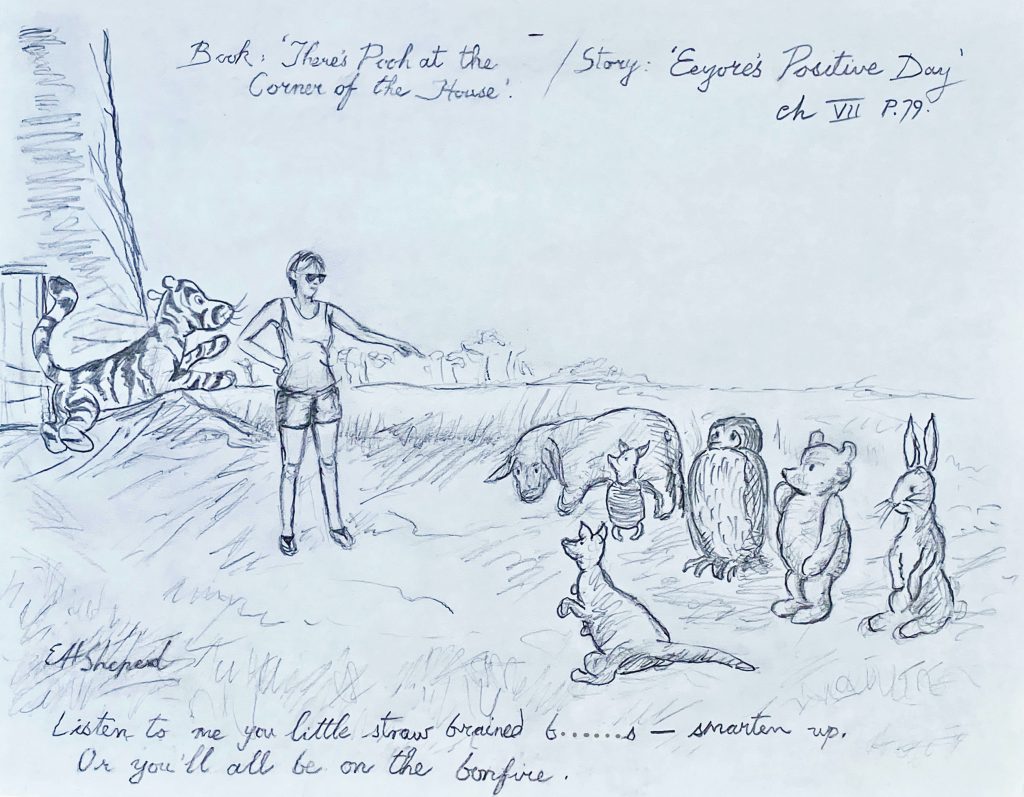 Book: 'There's Pooh at the
Corner of the House'.
/ Story: 'Eeyore's Positive Day'
ch VII P.79.
EHSheperd
Listen to me you little straw brained b......s – smarten up.
Or you'll all be on the bonfire.